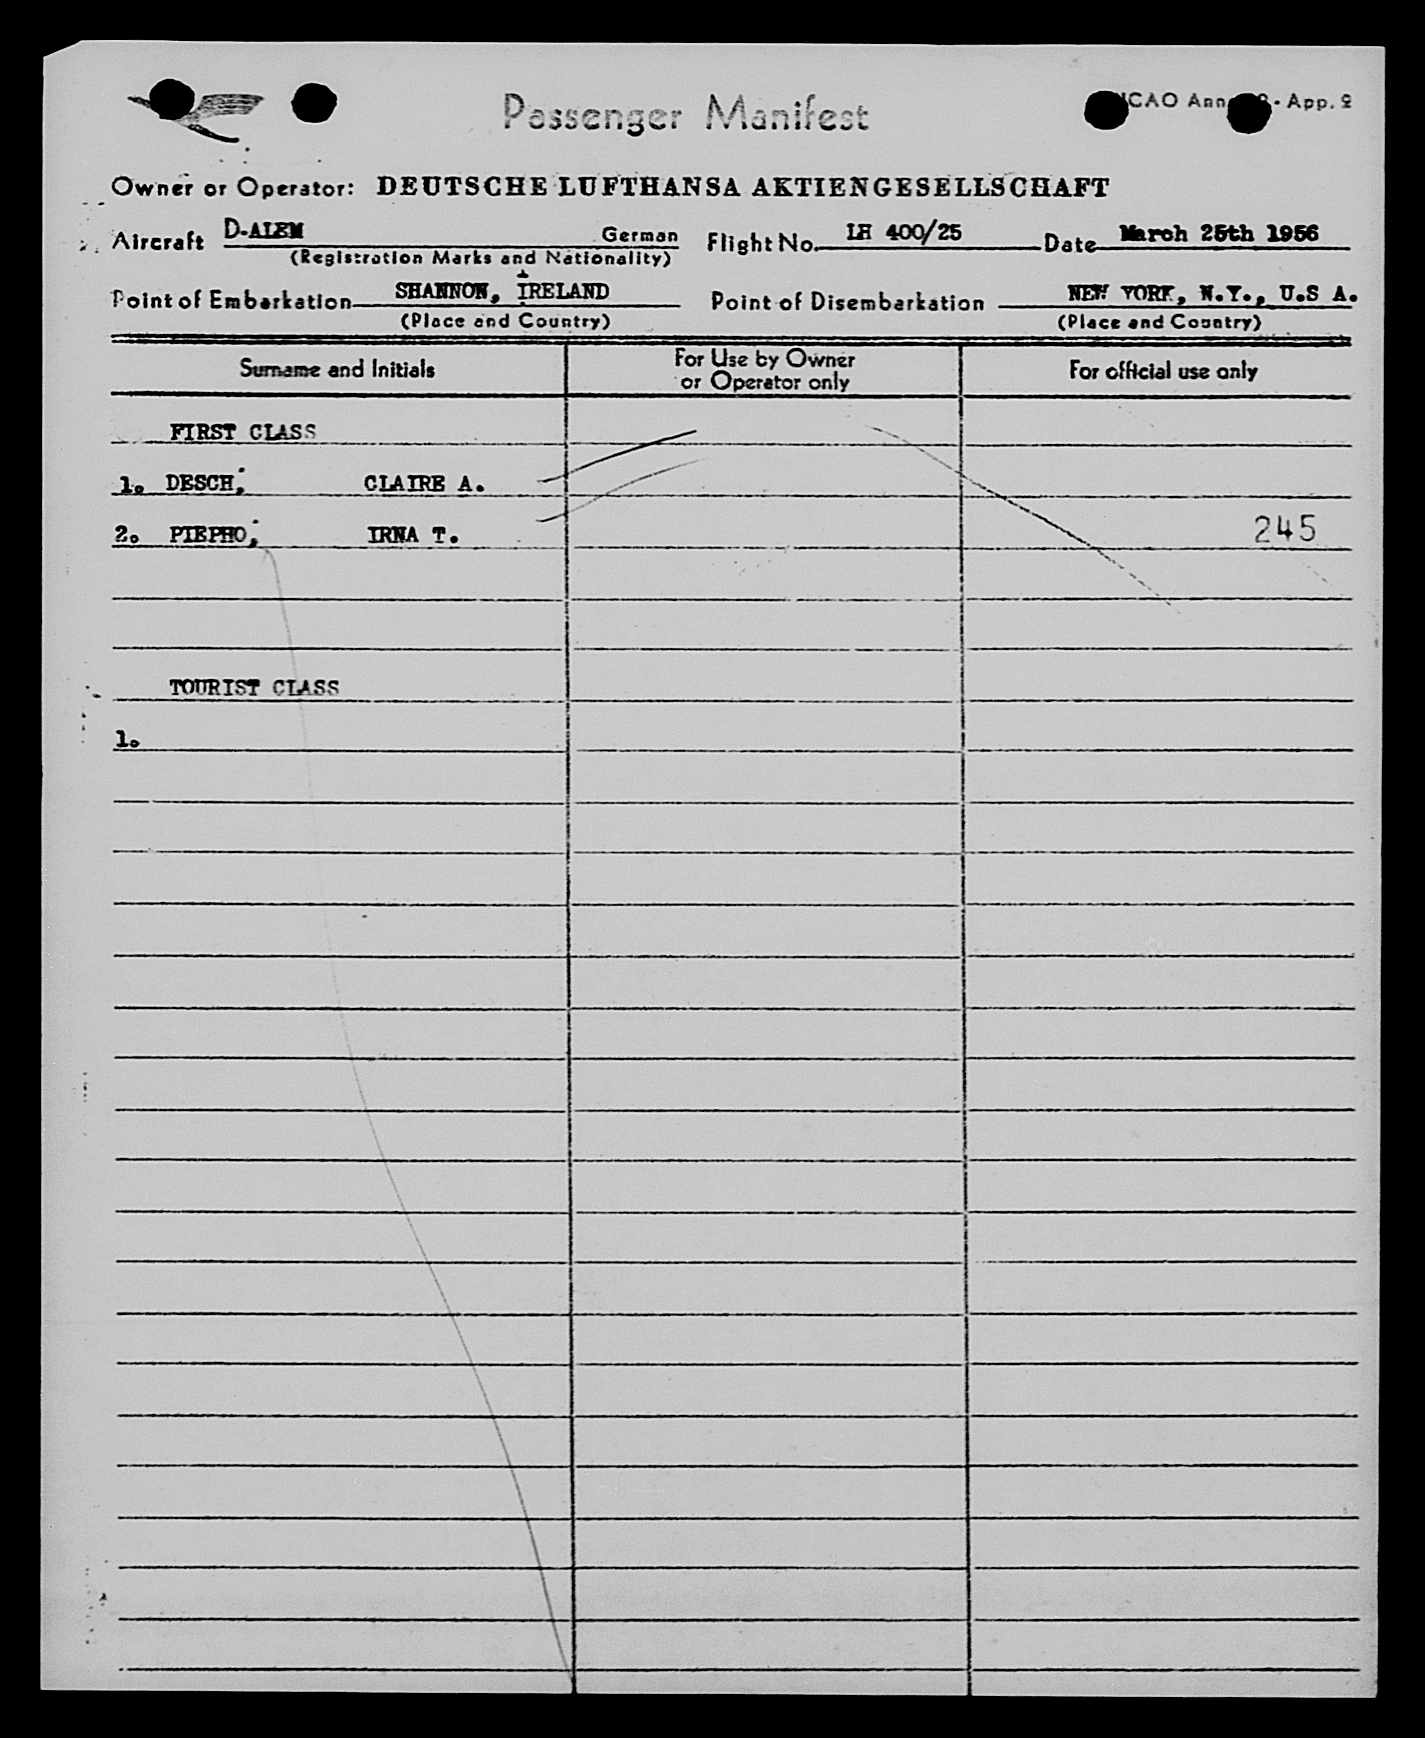 Passenger Manifest
ICAO Annex 9 - App. 2
Owner or Operator: DEUTSCHE LUFTHANSA AKTIENGESELLSCHAFT
Aircraft D-ALEM German Flight No. LH 400/25 Date March 25th 1956
(Registration Marks and Nationality)
Point of Embarkation SHANNON, IRELAND Point of Disembarkation NEW YORK, N.Y., U.S A.
(Place and Country) (Place and Country)
Surname and Initials For Use by Owner or Operator only For official use only
FIRST CLASS
1. DESCH, CLAIRE A.
2. PIEPHO, IRNA T. 245
TOURIST CLASS
1.